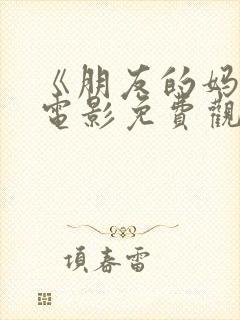 《朋友的妈
電影免費觀
項春雷